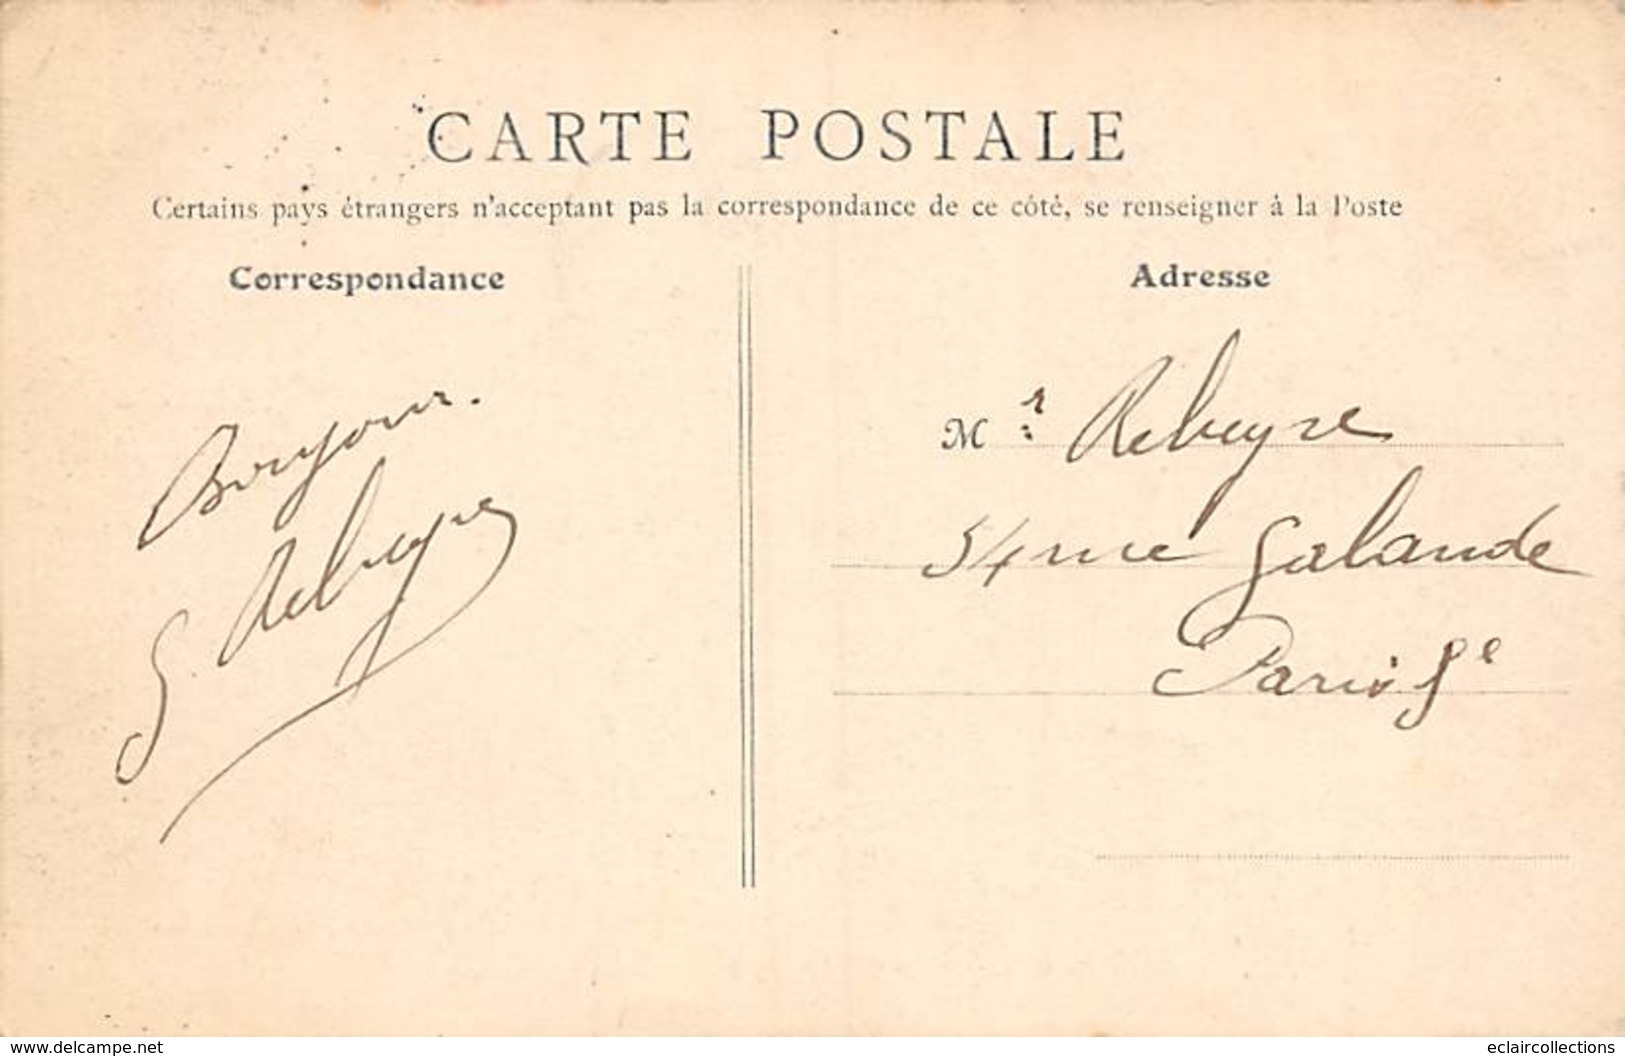 CARTE POSTALE
Certains pays étrangers n'acceptant pas la correspondance de ce côté, se renseigner à la Poste
Correspondance
Bonjour.
G Rebeyre
Adresse
Mr Rebeyre
54 rue Galande
Paris 5e
www.delcampe.net
eclaircollections